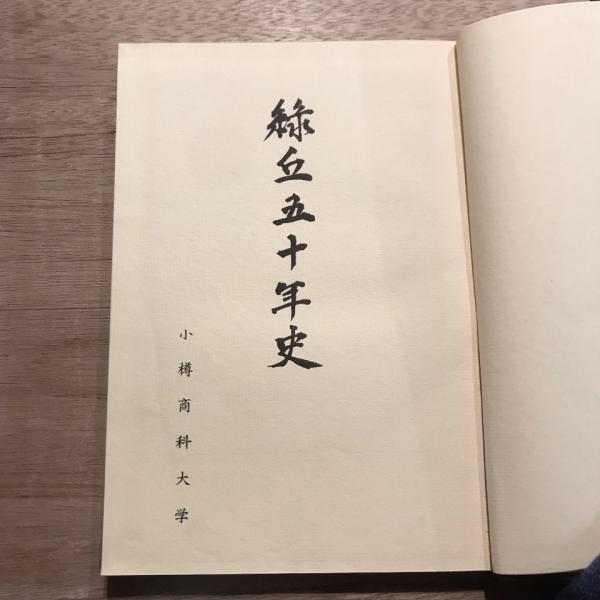 緑丘五十年史
小樽商科大学